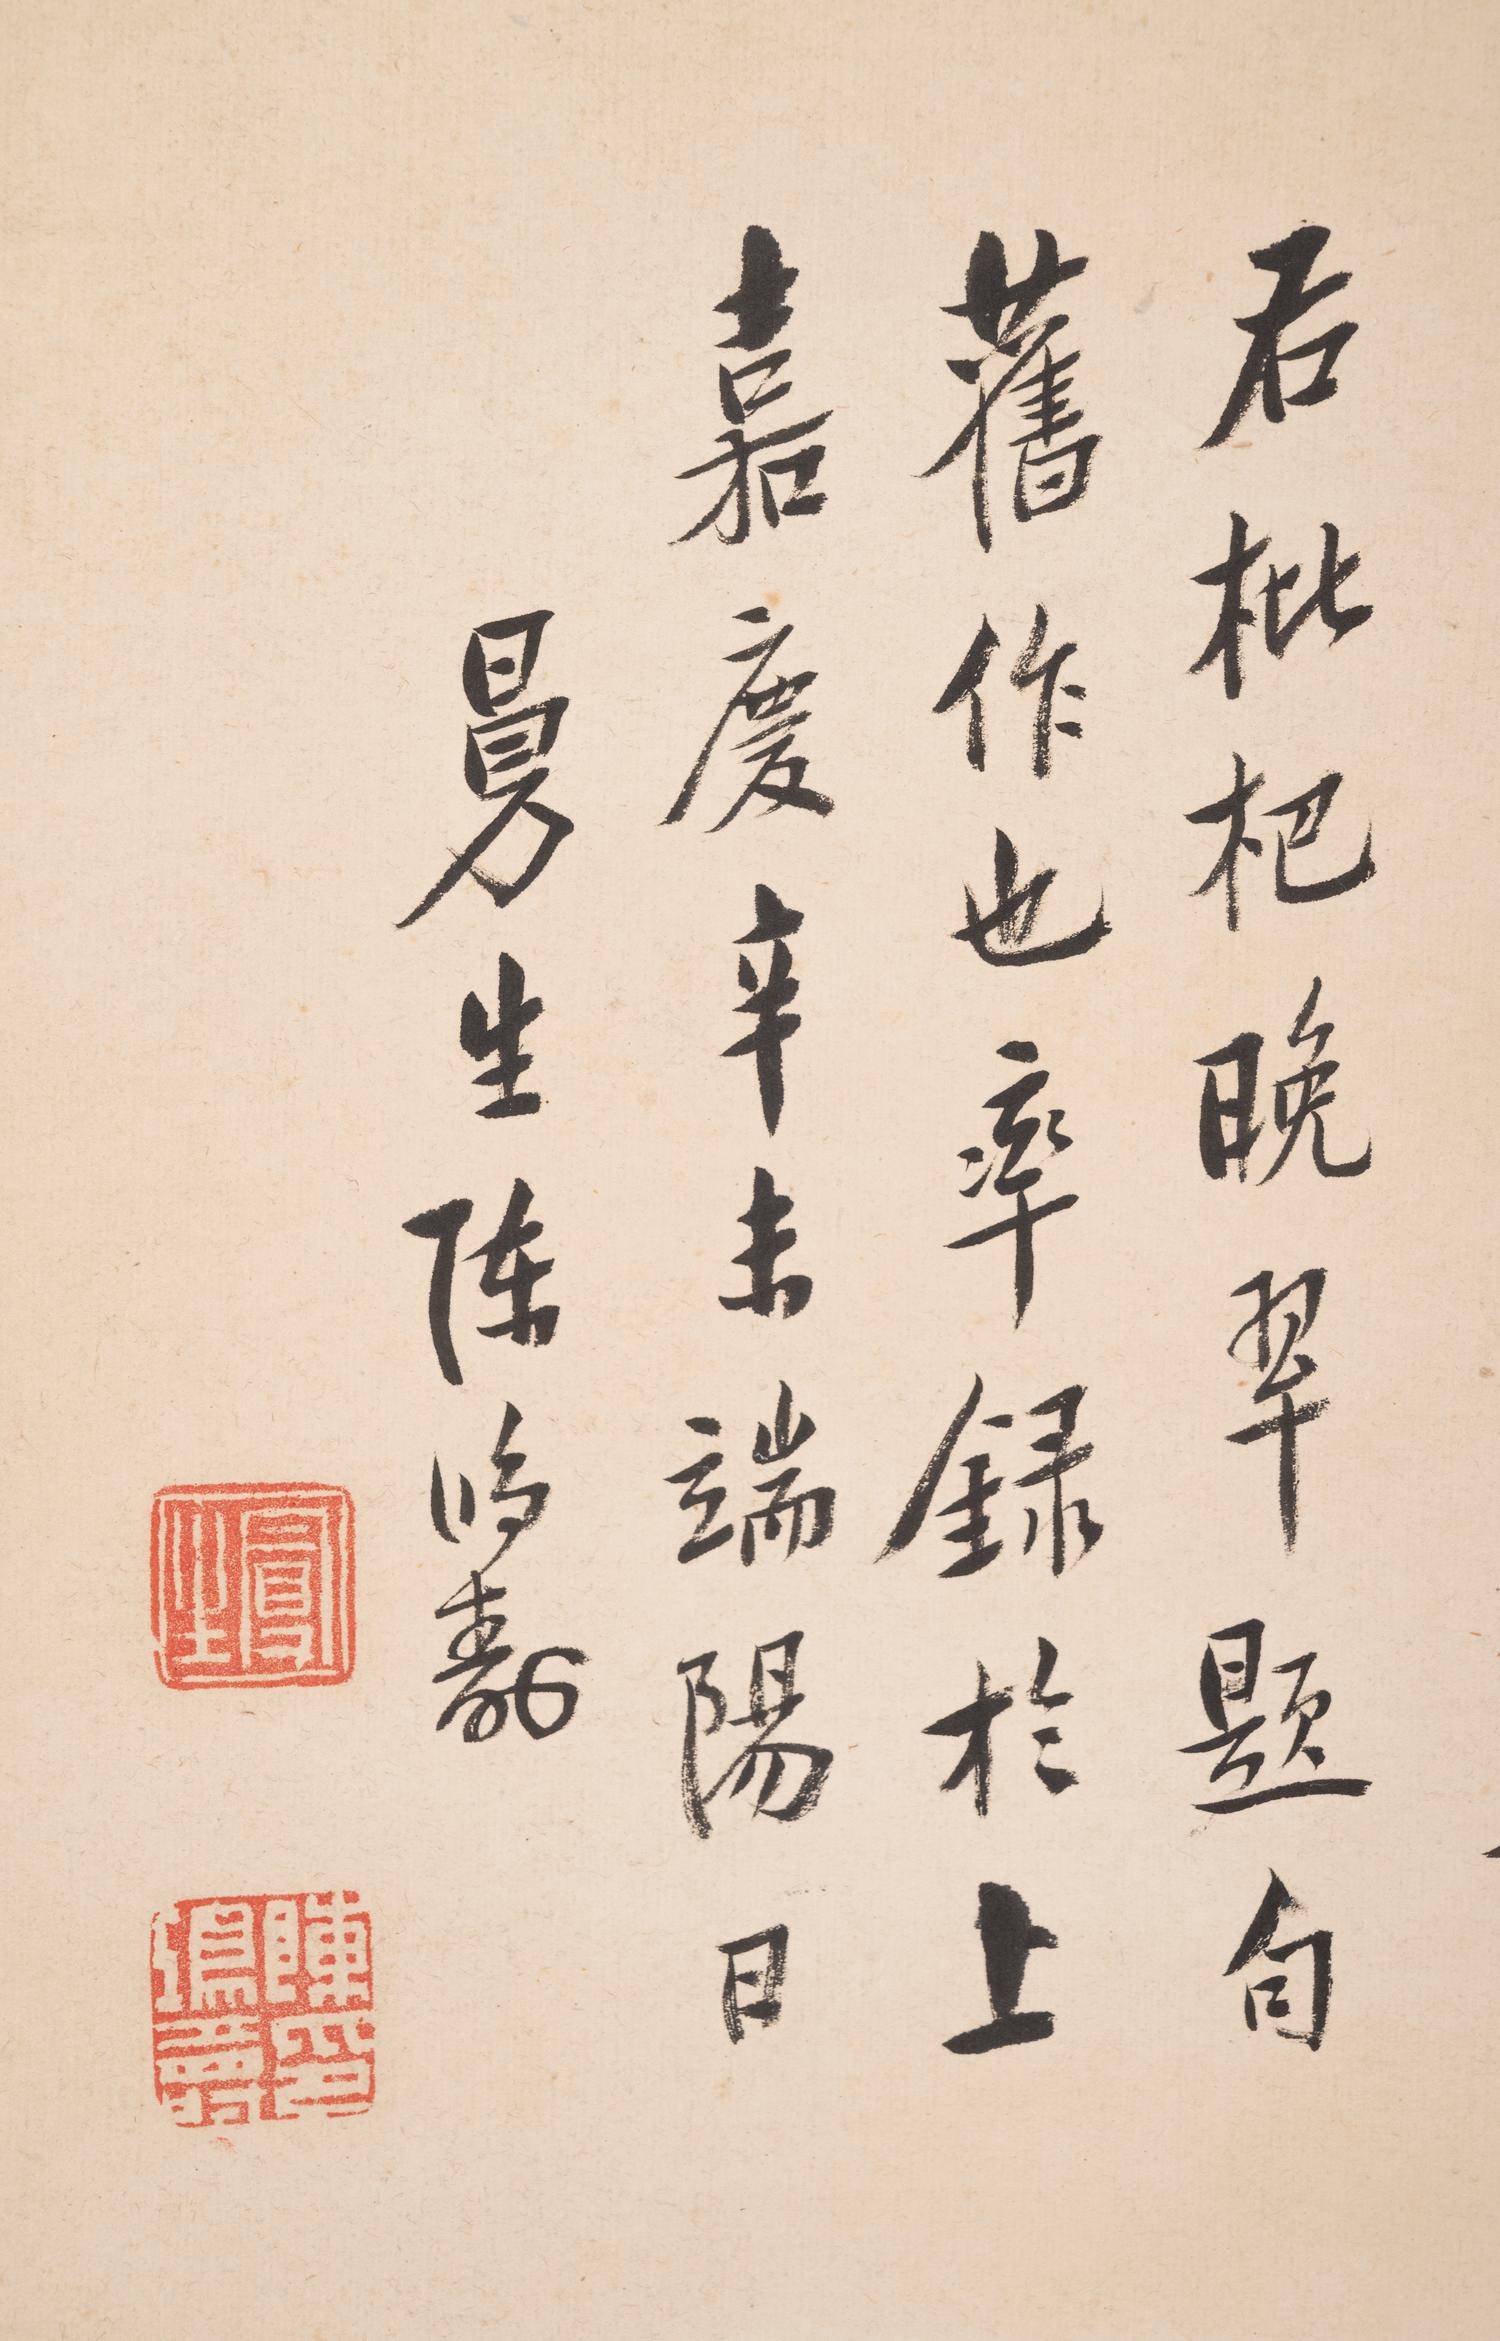 右枇杷晚翠題句
舊作也率錄於上
嘉慶辛未端陽日
曼生陳鴻壽
曼生
陳印鴻壽